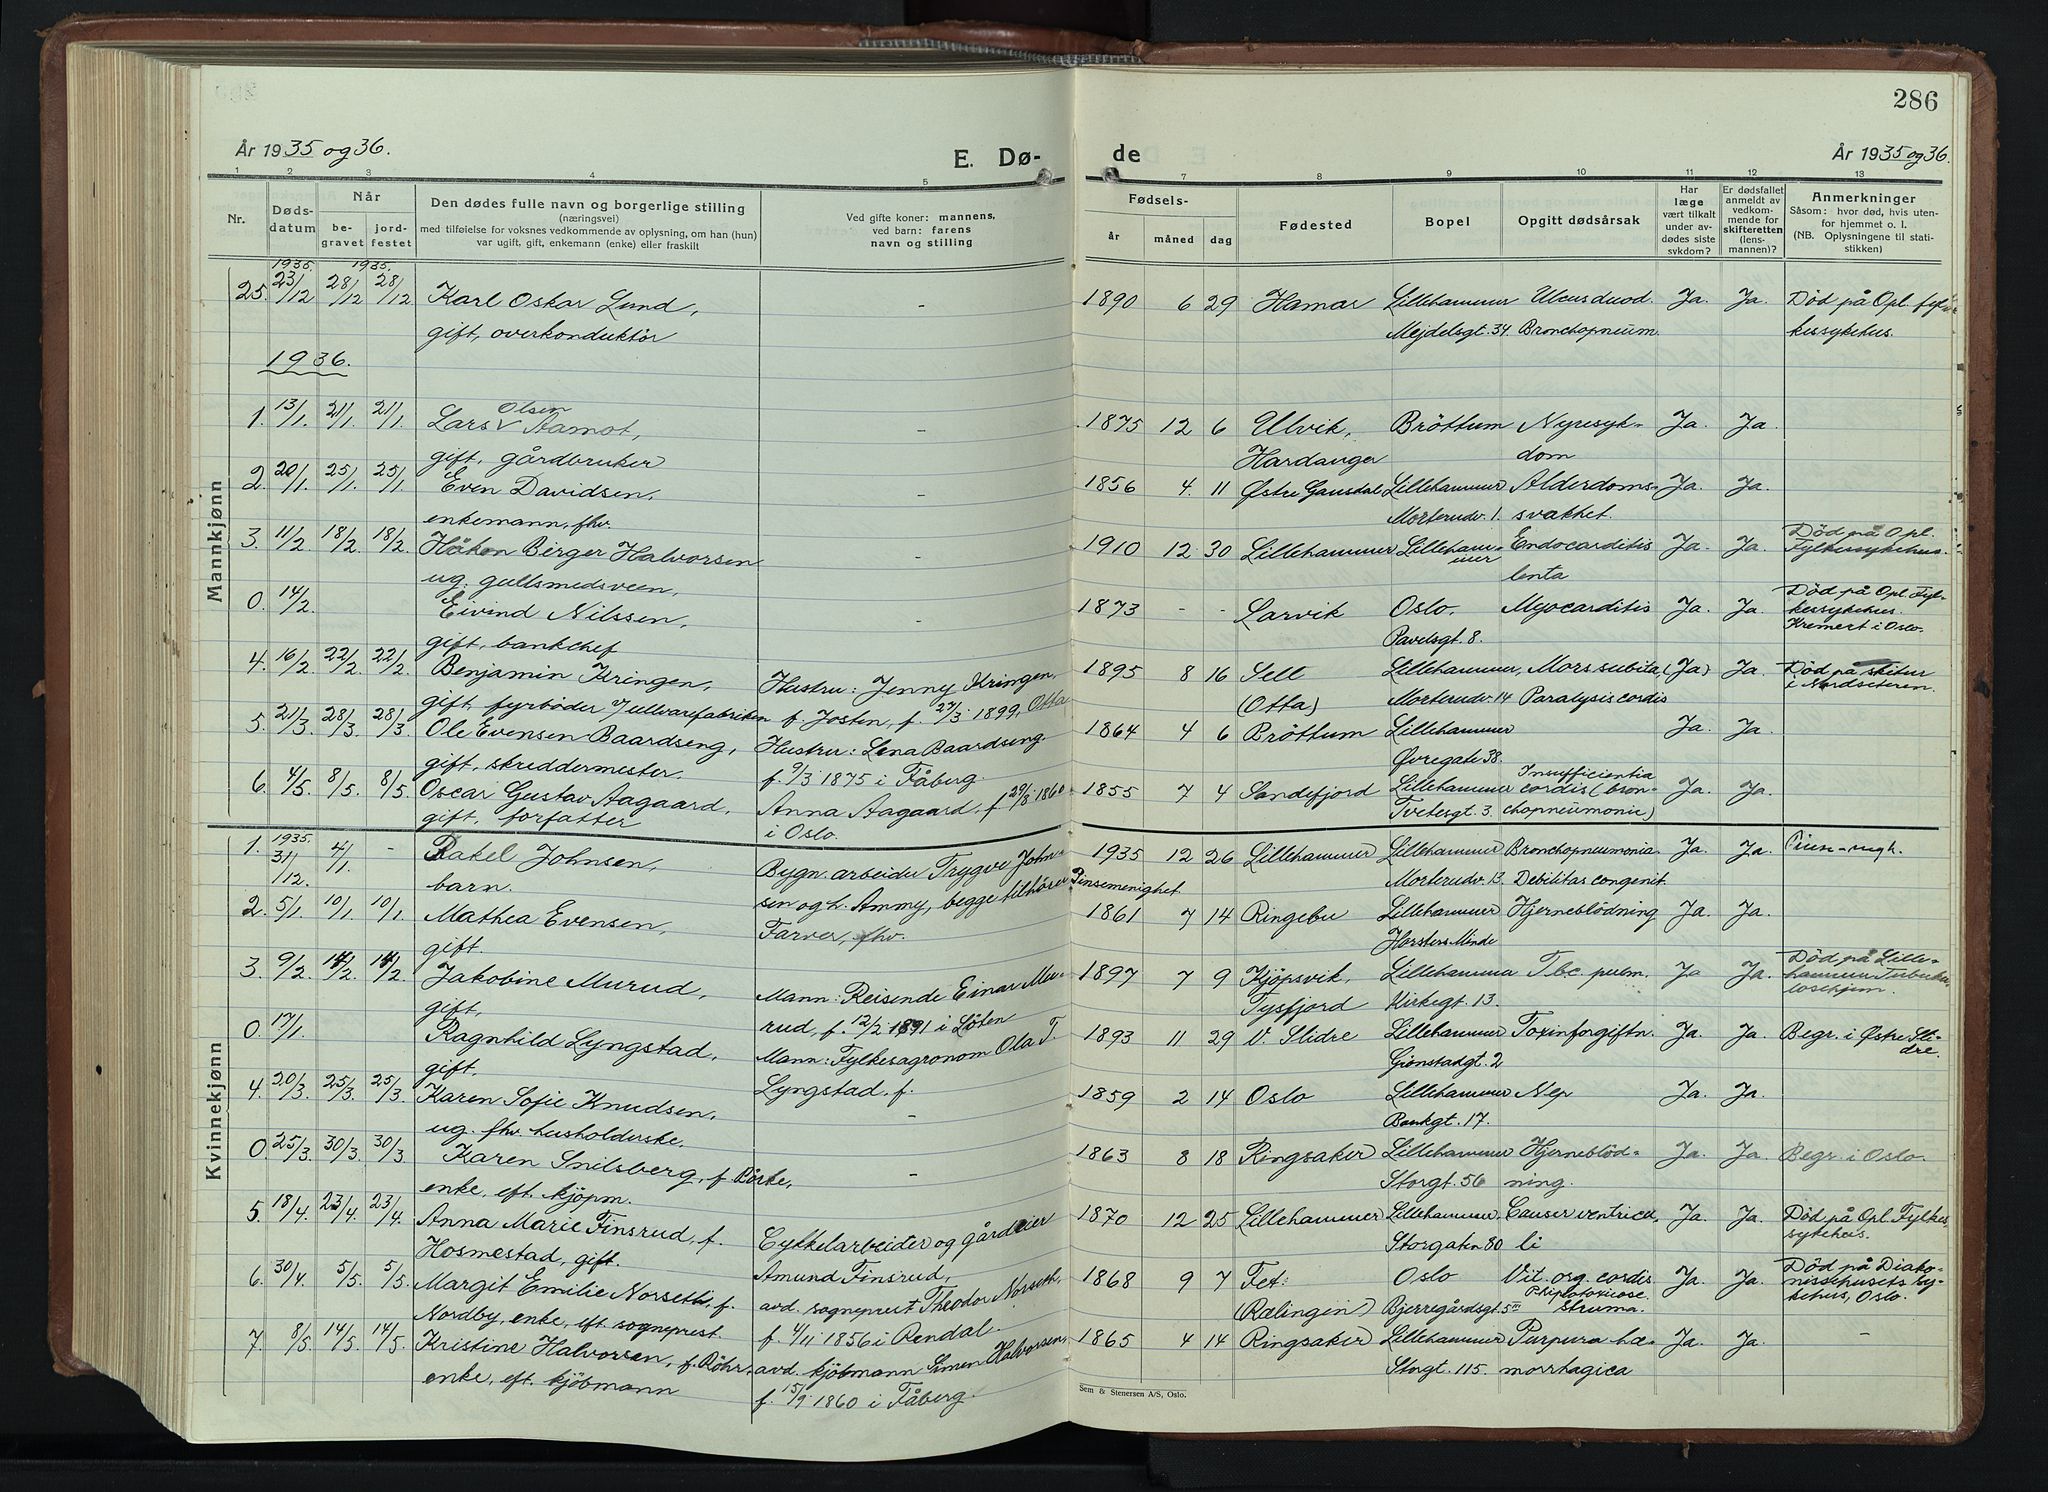 286
År 1935 og 36.
E. Dø-
de
År 1935 og 36.
1 2 3 4 5 7 8 9 10 11 12 13
Nr.
Dødsdatum
Når
begravet
jordfestet
Den dødes fulle navn og borgerlige stilling
(næringsvei)
med tilføielse for voksnes vedkommende av oplysning, om han (hun)
var ugift, gift, enkemann (enke) eller fraskilt
Ved gifte koner: mannens,
ved barn: farens
navn og stilling
Fødsels-
år måned dag
Fødested
Bopel
Opgitt dødsårsak
Har
læge
vært tilkalt
under avdødes siste
svkdom?
Er dødsfallet
anmeldt av
vedkommende for
skifteretten
(lensmannen)?
Anmerkninger
Såsom: hvor død, hvis utenfor hjemmet o. l.
(NB. Oplysningene til statistikken)
Mannkjønn
1935. 1935.
25. 23/12 28/12 28/12 Karl Oskar Lund, - 1890 6 29 Hamar Lillehammer Ulcus duod. Ja. Ja. Død på Opl. fyl-
gift, overkonduktör Mejdelsgt. 34. Bronchopneum. kessykehus.
1936.
1. 13/1 21/1. 21/1. Lars Olsen Aamot, - 1875 12 6 Ulvik, Bröttum Nyresyk- Ja Ja.
gift, gårdbruker Hardanger dom
2. 20/1. 25/1. 25/1 Even Davidsen, - 1856 4. 11 Østre Gausdal Lillehammer Alderdoms- Ja. Ja.
enkemann, fhv. Morterudv. 1. svakhet.
3. 11/2 18/2 18/2 Håkon Birger Halvorsen - 1910 12. 30 Lillehammer Lillehammer Endocarditis Ja. Ja. Død på Opl. Fylkessykehus.
ug. gullsmedsveen, lenta
0. 14/2. Eivind Nilssen, - 1873 - - Larvik Oslo, Myocarditis Ja. Ja. Død på Opl. Fylkessykehus.
gift, bankchef Pavelsgt. 8. Kremert i Oslo.
4. 16/2 22/2. 22/2. Benjamin Kringen, Hustru: Jenny Kringen, 1895 8 16 Sell Lillehammer, Mors subita, (Ja) Ja. Død på skitur
gift, fyrbøder v/ullvarefabriken f. Josten, f. 27/3 1899, Otta (Otta) Morterudv. 14 Paralysis cordis i Nordseteren.
5. 21/3. 28/3 28/3 Ole Evensen Baardseng, Hustru: Lena Baardseng 1864 4 6 Bröttum Lillehammer Ja. Ja.
gift, skreddermester. f. 9/3 1875 i Fåberg. Øvregate 38.
6. 4/5. 8/5. 8/5. Oscar Gustav Aagaard, Anna Aagaard, f. 29/8 1860 1855 7 4 Sandefjord Lillehammer Insufficientia cordis (bron- Ja. Ja.
gift, forfatter i Oslo. Tvetesgt. 3. chopneumonie)
Kvinnekjønn
1. 1935. 31/12. 4/1 - Rakel Johnsen, Bygn. arbeider Trygve John- 1935 12 26 Lillehammer Lillehammer Bronchopneumonia. Ja. Ja.
barn. sen og h. Ammy, begge tilhører Pinsemenighet Morterudv. 13. Debilitas congenit.
2. 5/1. 10/1. 10/1 Mathea Evensen, Farver, fhv. 1861 7 14 Ringebu Lillehammer Hjerneblödning Ja. Ja.
gift. Horsters Minde
3. 9/2. 14/2. 14/2 Jakobine Murud, Mann: Reisende Einar Mu- 1897 7 9 Kjöpsvik, Lillehamma Tbc. pulm. Ja Ja. Død på Lille-
gift, rud, f. 12/2 1891 i Löten Tysfjord Kirkegt. 13. hammer Tuberkulosehjem.
0. 17/1. Ragnhild Lyngstad, Mann: Fylkesagronom Ola T. 1893 11 29 V. Slidre Lillehammer Toxinforgiftn. Ja. Ja. Begr. i Østre Slidre.
gift. Lyngstad, f. Gjönstadgt. 2
4. 20/3. 25/3. 25/3. Karen Sofie Knudsen, - 1859 2 14 Oslo Lillehammer Nep Ja. Ja.
ug. fhv. husholderske. Bankgt. 17.
0. 25/3. 30/3. 30/3 Karen Snilsberg, f. - 1863 8 18 Ringsaker Lillehammer Hjerneblöd- Ja. Ja. Begr. i Oslo.
enke, eft. kjöpm. Storgt. 56 ning.
5. 18/4. 23/4. 23/4. Anna Marie Finsrud, f. Cykkelarbeider og gårdeier 1870 12 25 Lillehammer Lillehammer, Cancer ventricu- Ja. Ja. Død på Opl. Fylkes
Hosmestad, gift. Amund Finsrud, Storgaten 80 li sykehus.
6. 30/4. 5/5. 5/5. Margit Emilie Norseth, f. avd. sogneprest Theodor Norseth, 1868 9 7 Fet: Oslo Vit. org. cordis Ja. Ja. Død på Diako-
Nordby, enke, eft. sogneprest. f. 4/11 1856 i Rendal. (Rælingen) Bjerregårdsgt. 5III Struma. nissehusets sykehus, Oslo.
7. 8/5. 14/5. 14/5. Kristine Halvorsen, f. Röhr, avd. kjöbmann Simen Halvorsen, 1865 4 14 Ringsaker Lillehammer Purpura hæ- Ja. Ja. -
enke, eft. kjöbmann f. 15/9 1860 i Fåberg. Storgt. 115. morrhagica
Sem & Stenersen A/S, Oslo.